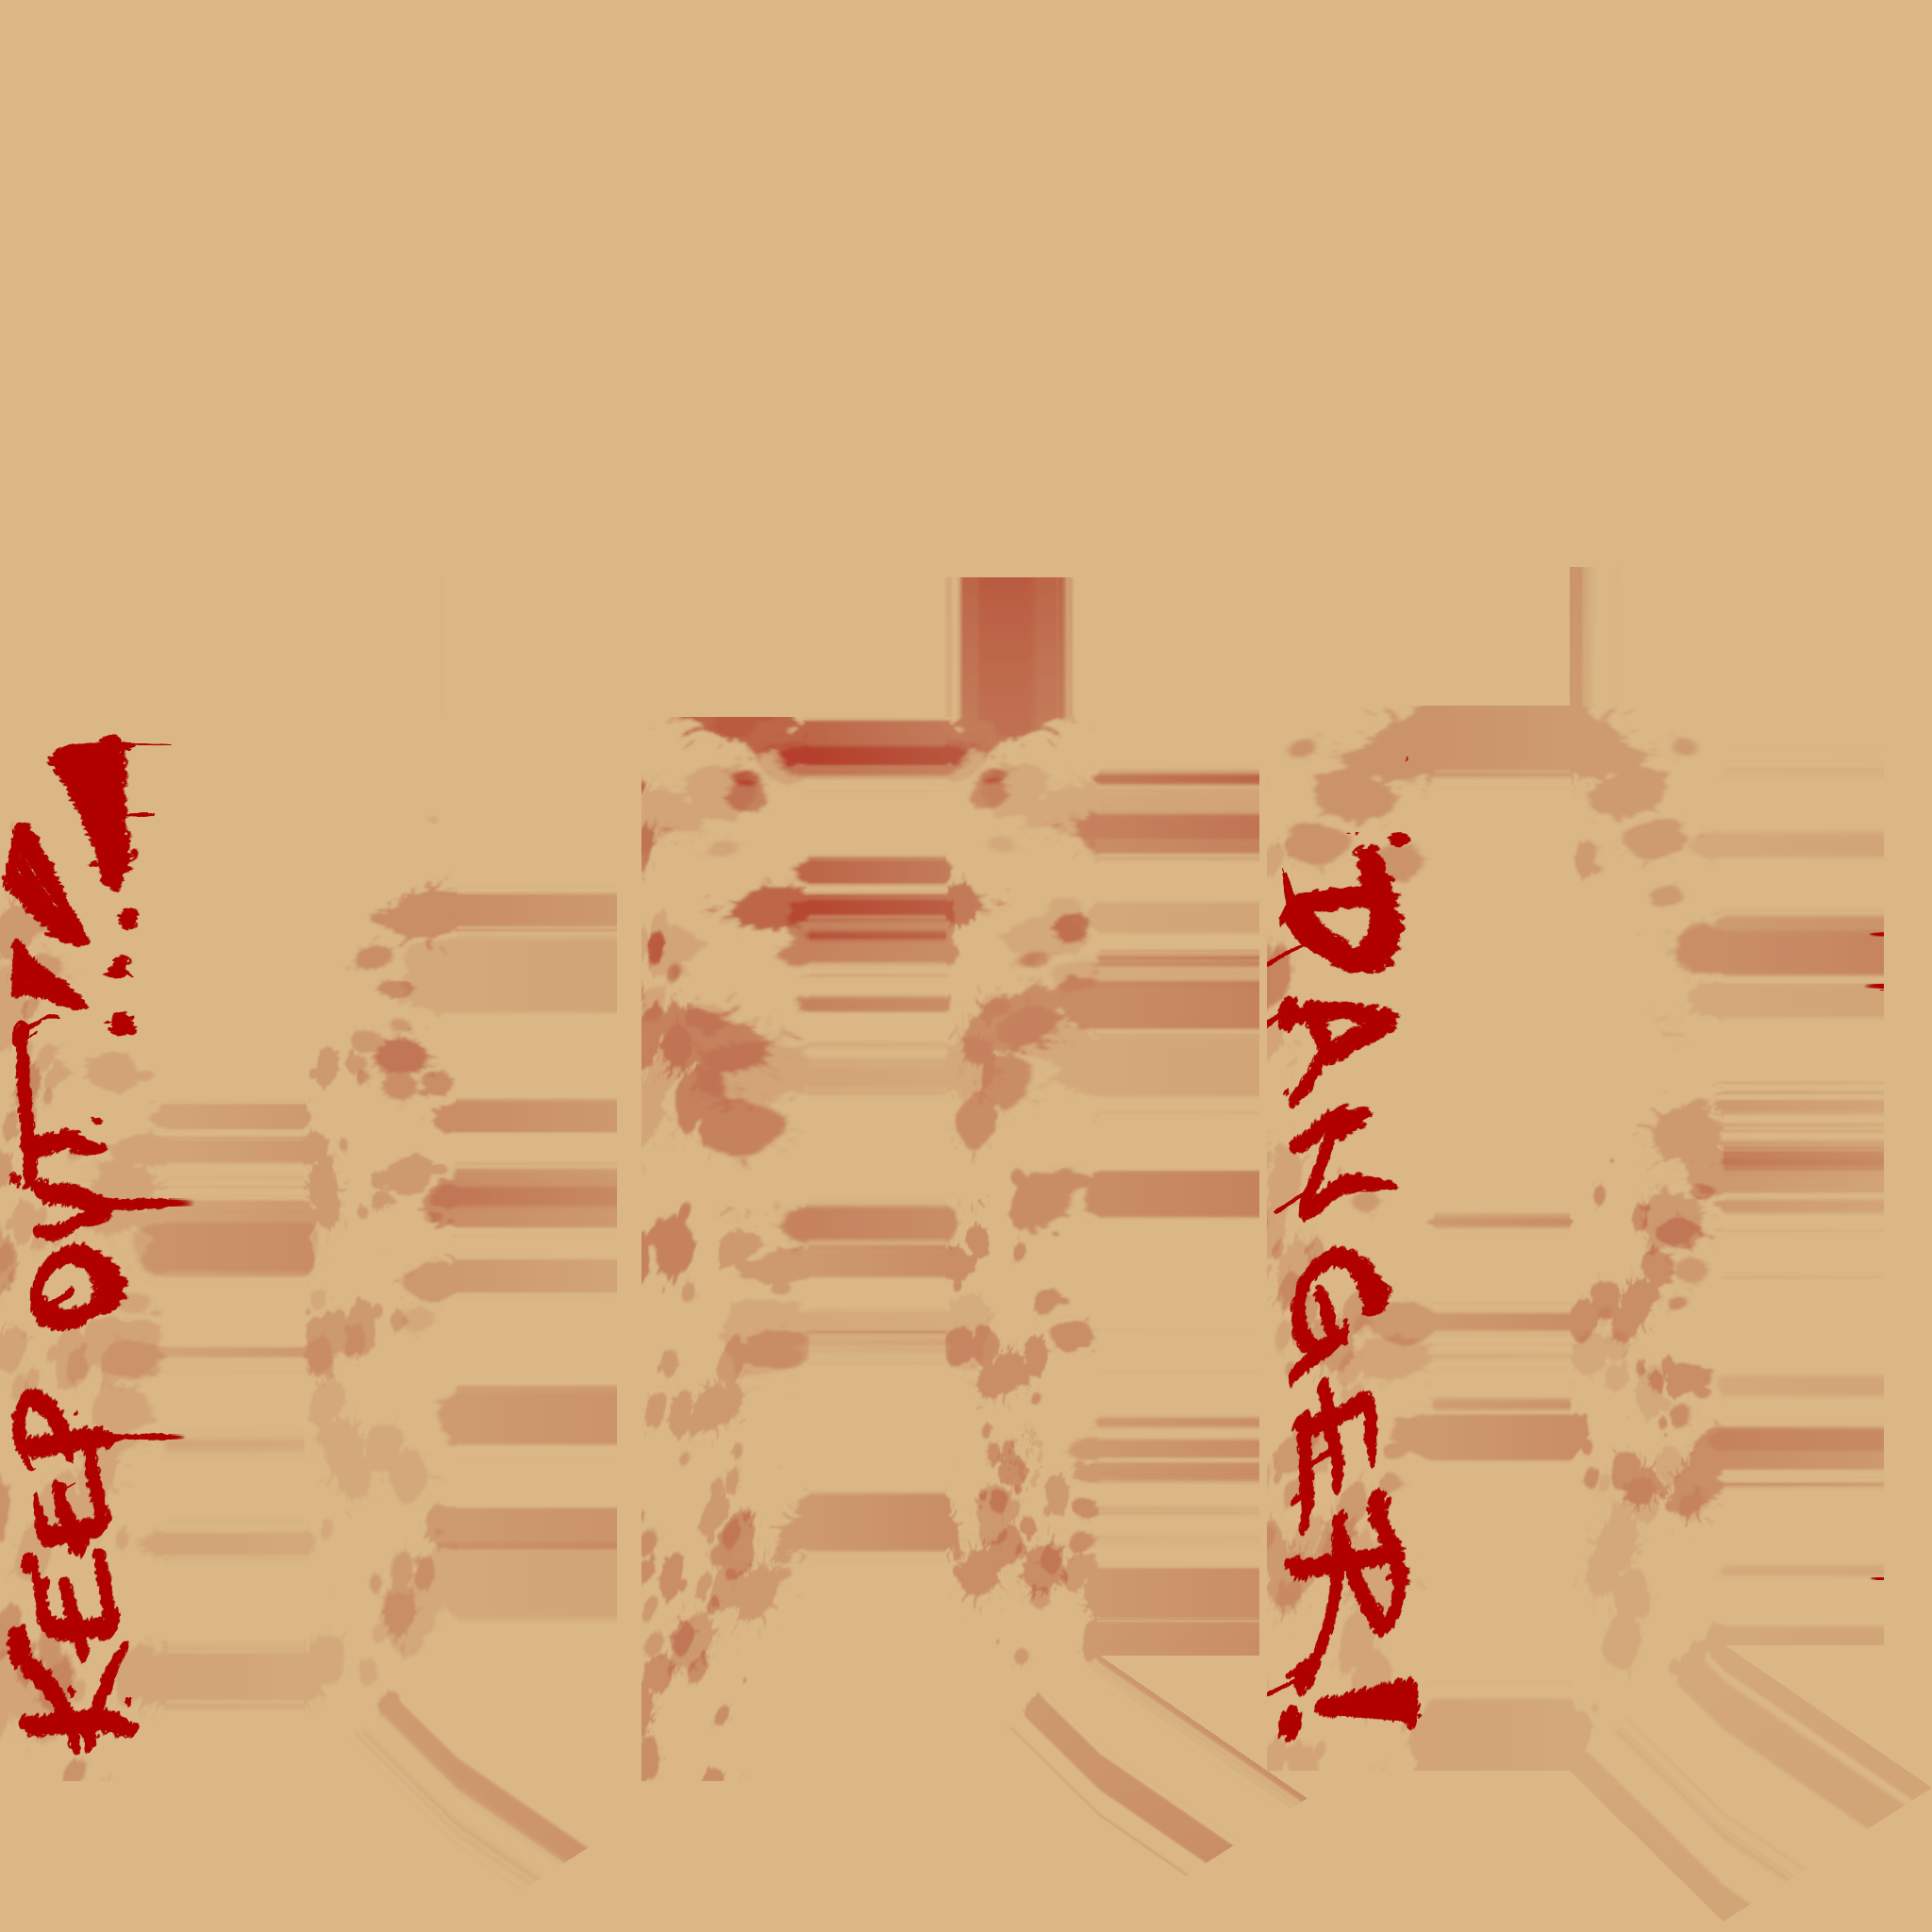 KEEP OUT!!!
DANGER!